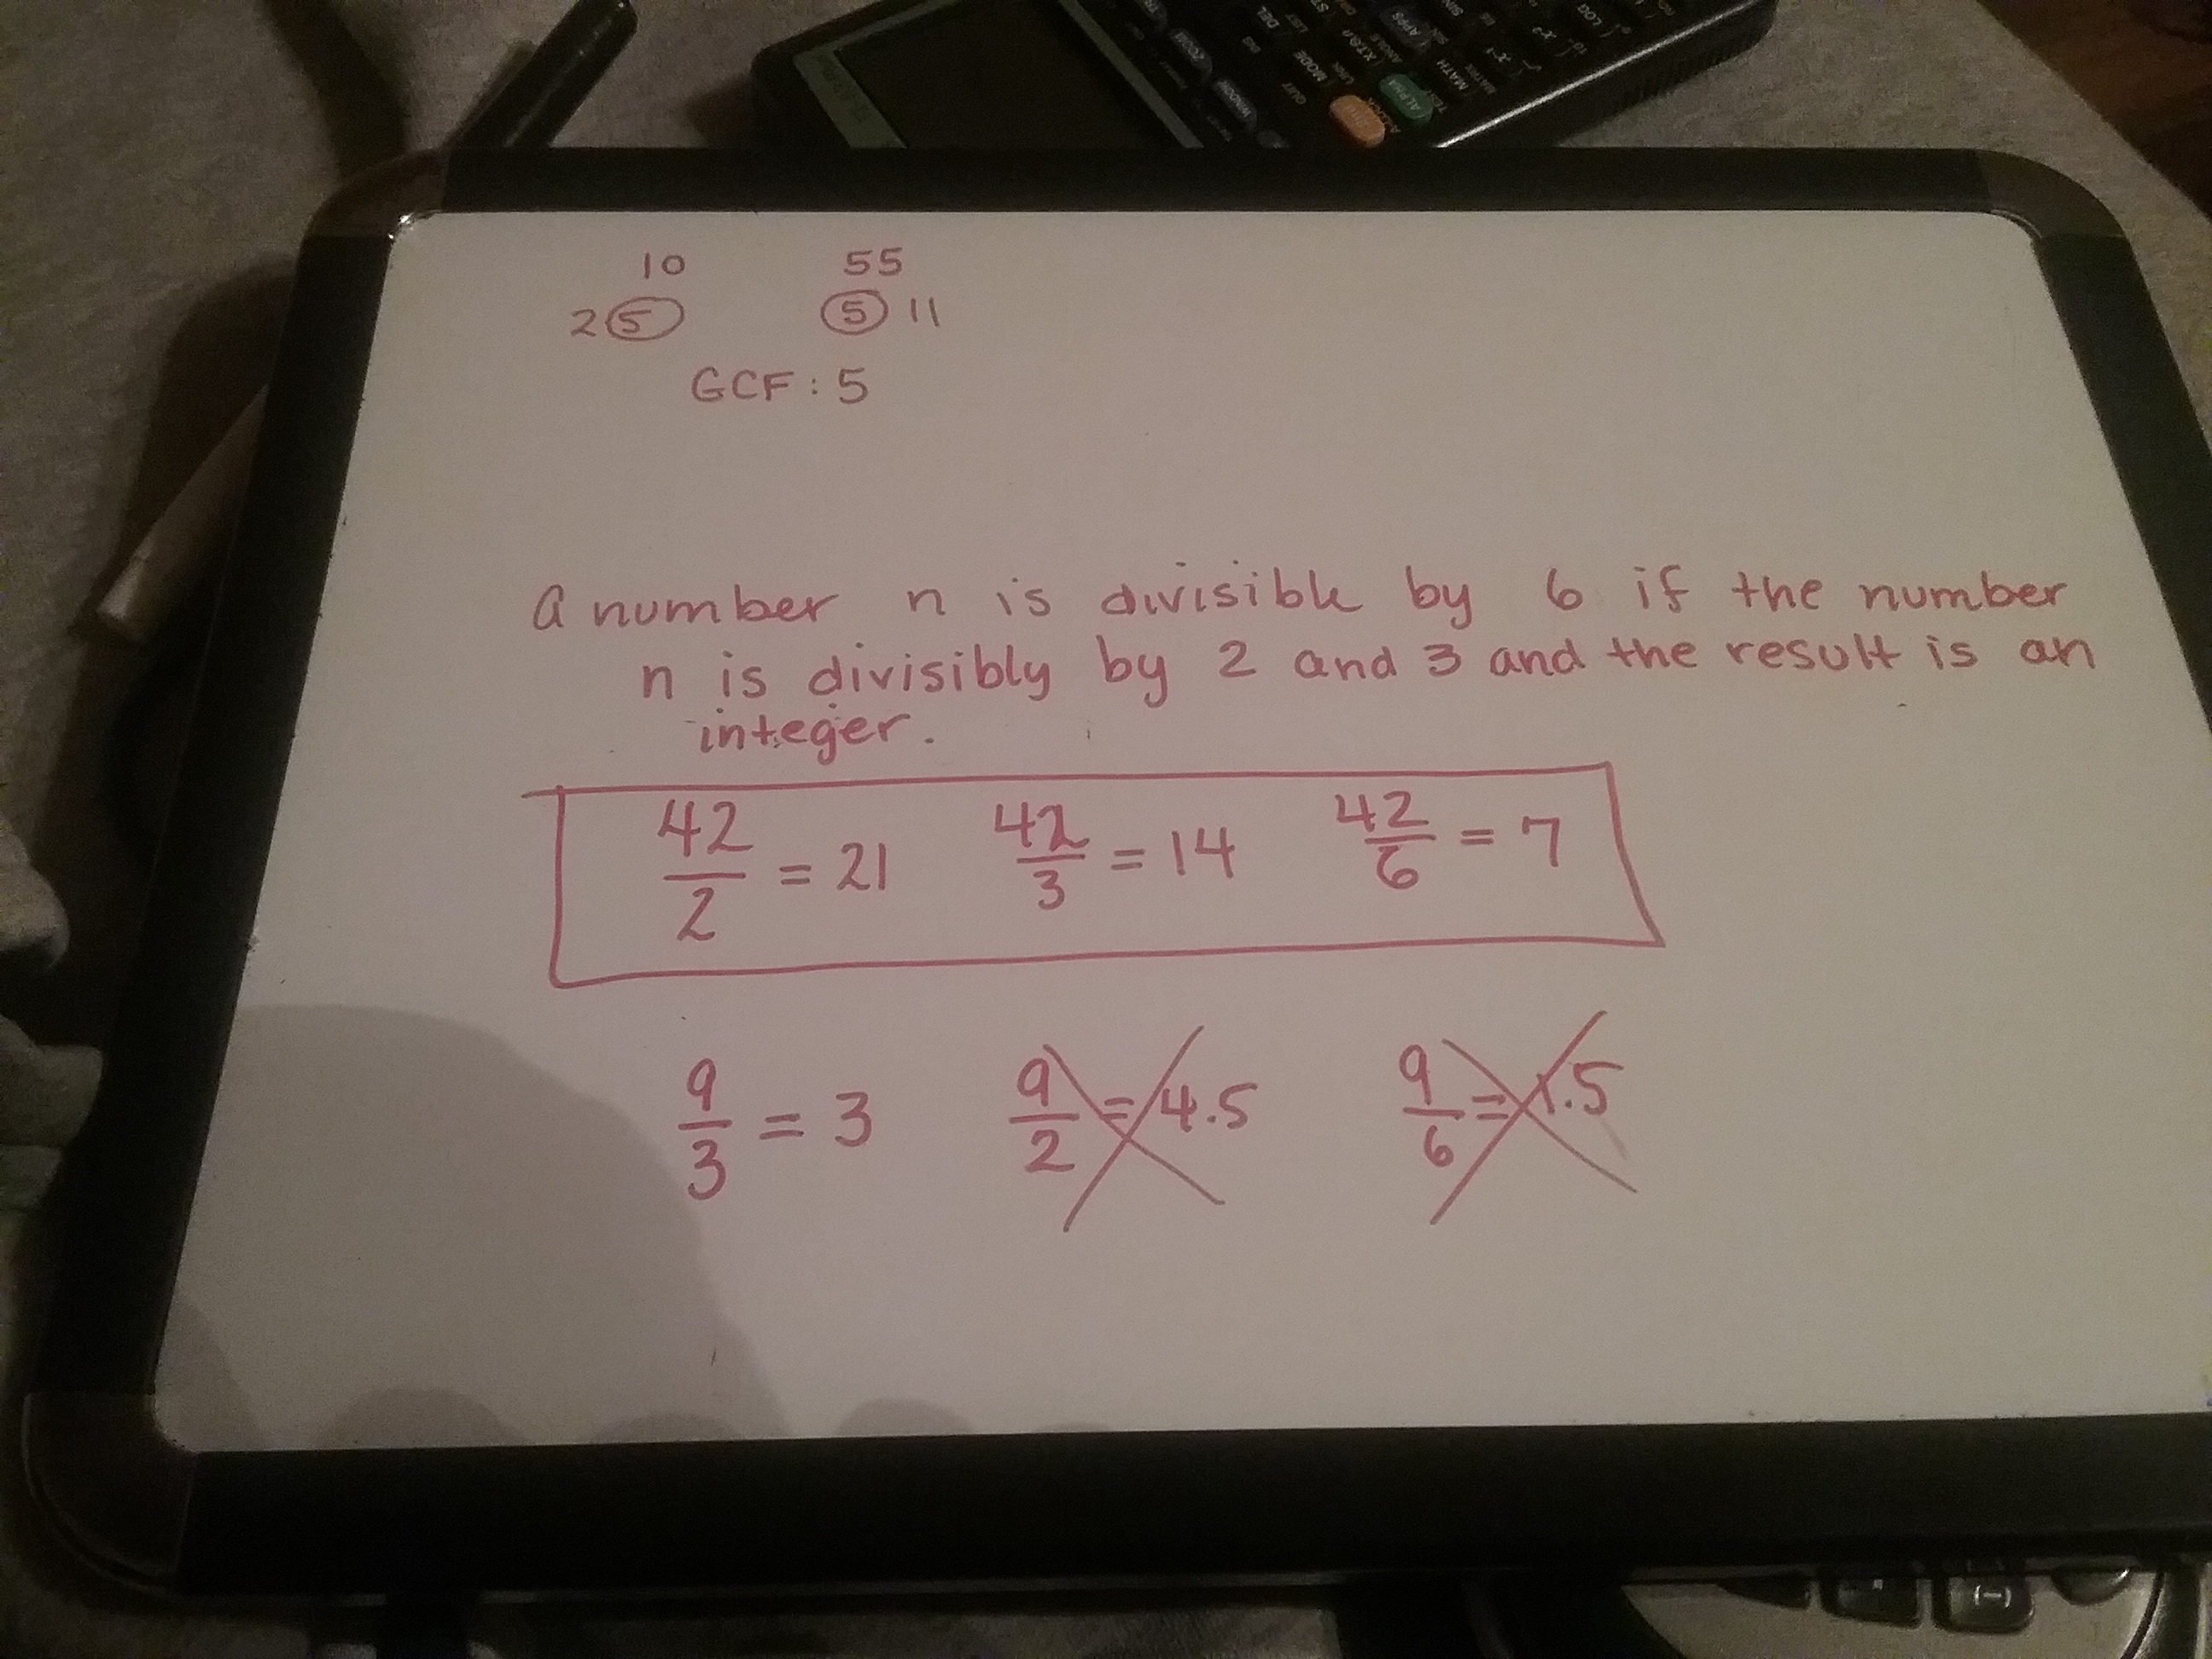 10 55
2 5 5 11
GCF: 5
a number n is divisible by 6 if the number
n is divisibly by 2 and 3 and the result is an
integer.
42/2 = 21 42/3 = 14 42/6 = 7
9/3 = 3 9/2 = 4.5 9/6 = 1.5
DEL
MODE
QUIT
ALPHA
MATH
APPS
LOG
ZOOM
WINDOW
TEST
LINK